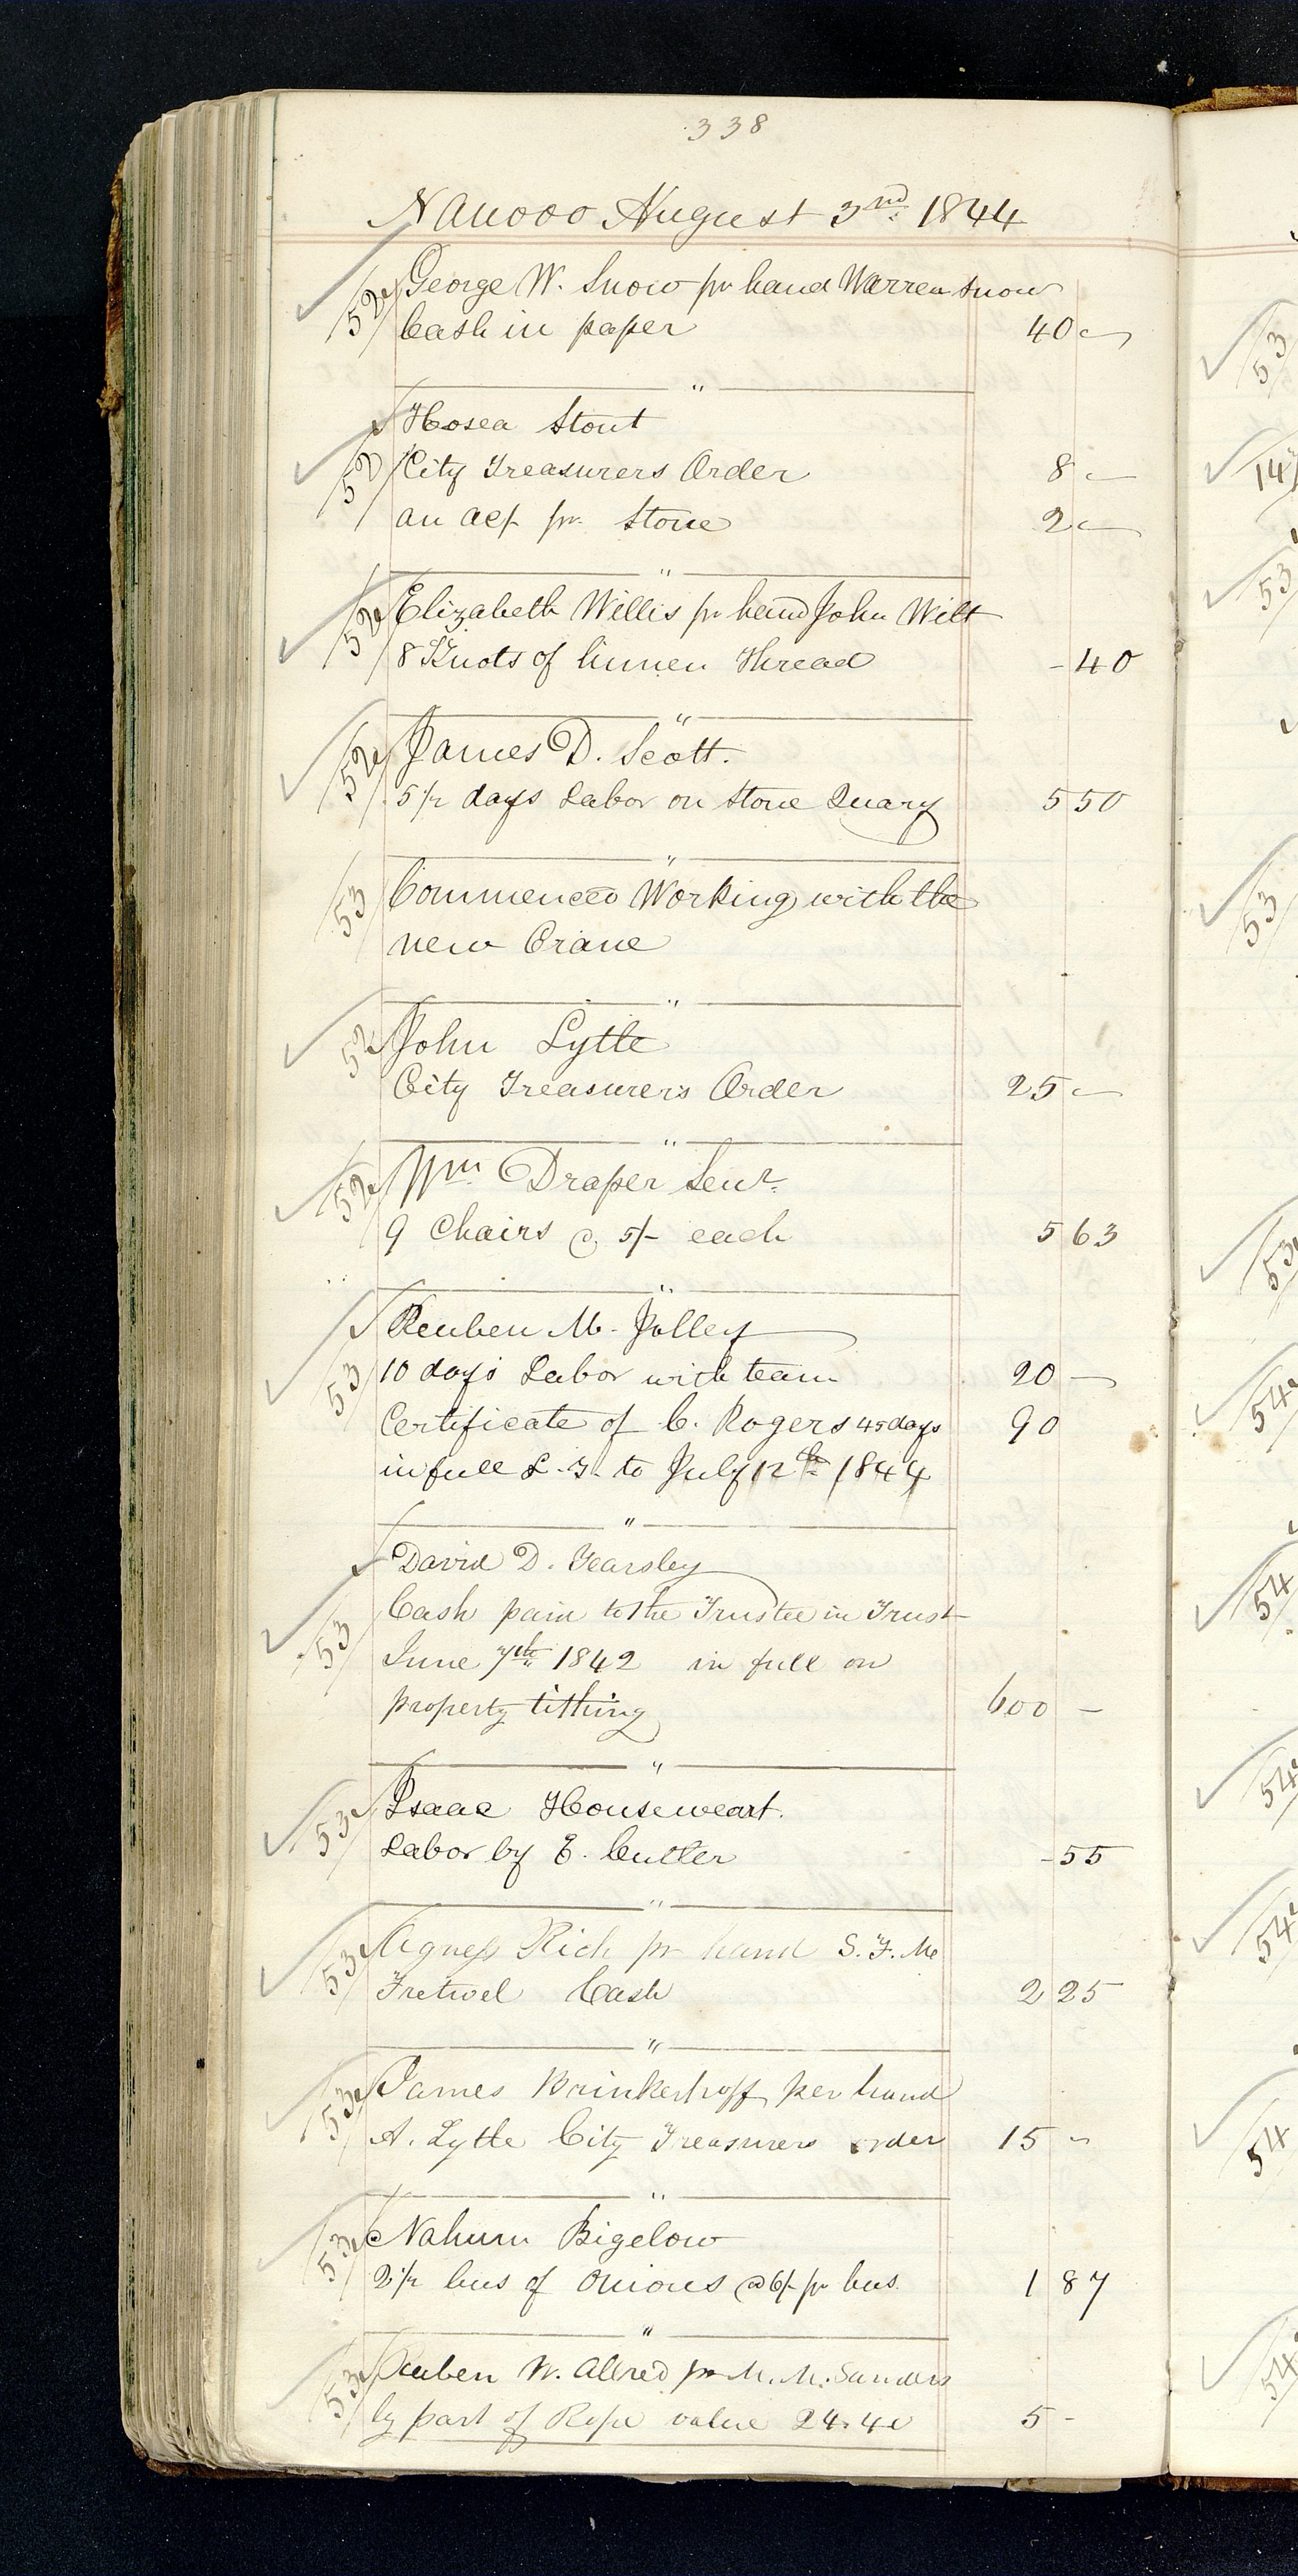 338
Nauvoo August 3rd 1844
52 George W. Snow pr hand Warren Snow
Cash in paper 40 -
"
Hosea Stout
52 City Treasurers Order 8 -
an act pr Stone 2 -
"
52 Elizabeth Willis pr hand John Wilt
8 Knots of linnen Thread - 40
"
52 James D. Scott.
5 1/2 days Labor on Stone Quary 5 50
"
53 Commenced Working with the
new Crane
"
52 John Lytle
City Treasurer's Order 25 -
"
52 Wm Draper Senr.
9 Chairs @ 5/- each 5 63
"
Reuben M. Jolley
53 10 days Labor with team 20 -
Certificate of C. Rogers 45 days 90
in full L. T. to July 12th 1844
"
David D. Yearsley
53 Cash paid to the Trustee in Trust
June 7th 1842 in full on
property tithing 600 -
"
53 Isaac Houseweart.
Labor by E. Cutler - 55
"
53 Agness Rich pr hand S. F. Mc
Fretwel Cash 2 25
"
53 James Brinkerhoff per hand
A. Lytle City Treasurers order 15 -
"
53 Nahum Bigelow
2 1/2 bus of Onions @ 6/- pr bus. 1 87
"
53 Reuben W. Allred pr M. M. Sanders
by part of Rope value 24.40 5 -
53
14
53
53
53
54
54
54
54
54
54